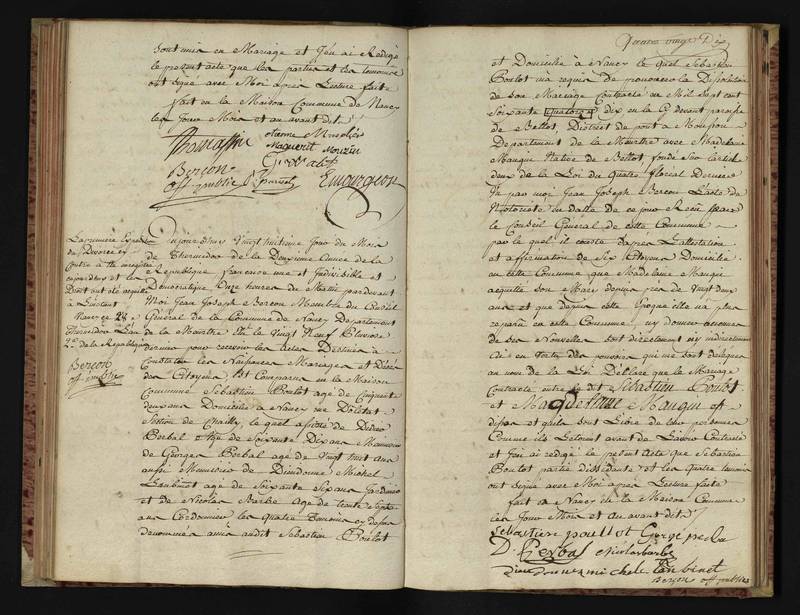 sont unis en Mariage et j'en ai Redigé
le present acte que les parties et les temoins
ont signé avec Moi apres Lecture faite
fait en la Maison Commune de Nancy
les Jour Mois et an avant dit
Thomassin
Maguerit Mouzin
Berçon
off. public
Emourgeon
La premiere Exped
du Divorce
à Linstant
Nancy 28
Thermidor Lan
2e de la Republique
Berçon
off. public
Aujourdhuy Vingt huitieme Jour du Mois
de Thermidor de la Deuxieme Année de la
Republique francoise une et Indivisible et
Democratique Onze heures du Matin pardevant
Moi Jean Joseph Berçon Membre du Conseil
Général de la Commune de Nancy Departement
de la Meurthe Elu le Vingt Neuf Pluviose
dernier pour recevoir les Actes Destinés à
Constater les Naissances Mariages et Décès
des Citoyens Est Comparu en la Maison
Commune Sebastien Poulot agé de Cinquante
deux ans Domicilié a Nancy
Section de Chailly, le quel assisté de Didier
Gerbal agé de Soixante Dix ans Manœuvre
de Georges Gerbal agé de Vingt huit ans
aussi Manœuvre de Dieudonné Michel
Lambinet agé de Soixante Six ans Jardinier
et de Nicolas Barbe agé de trente Sept
ans Cordonnier les Quatre Temoins cy dessus
denommés amis audit Sebastien Poulot
Quatre vingt Dix
et Domiciliés à Nancy le quel Sebastien
Poulot m'a requis de prononcer la Dissolution
de son Mariage Contracté en Mil Sept cent
Soixante quatorze dix en la Ci devant paroisse
de Bellot, District de pont a Mousson
Departement de la Meurthe avec Madelaine
Mangin Native de Bellot fondée Sur l'article
deux de la Loi du quatre floreal Dernier
Vu par moi Jean Joseph Berçon L'acte de
Notoriété en datte de ce jour Reçu par
le Conseil General de cette Commune
par le quel il conste d'apres L'attestation
et affirmation de Six Citoyens Domiciliés
en cette Commune que Madelaine Mangin
a quitté son Mari depuis près de Vingt deux
ans et que depuis cette Epoque elle n'a plus
reparu en cette Commune ny donner aucune
de ses Nouvelles soit directement ny indirectement
Ai en Vertu des pouvoirs qui me sont delegués
au nom de la Loi Declaré que le Mariage
Contracté entre le dit Sebastien Poulot
et Magdelaine Mangin est
dissous et qu'ils sont Libre de leur personnes
Comme ils Letoient avant de L'avoir Contracté
et j'en ai redigé le present Acte que Sebastien
Poulot partie dissidente et les Quatre temoins
ont signé avec Moi apres Lecture faite
fait a Nancy en la Maison Commune
les Jour Mois et an avant dit
Sebastien poullot George
D. Gerbal Nicolas barbe
dieudonné michel Lanbinet
Berçon off. public